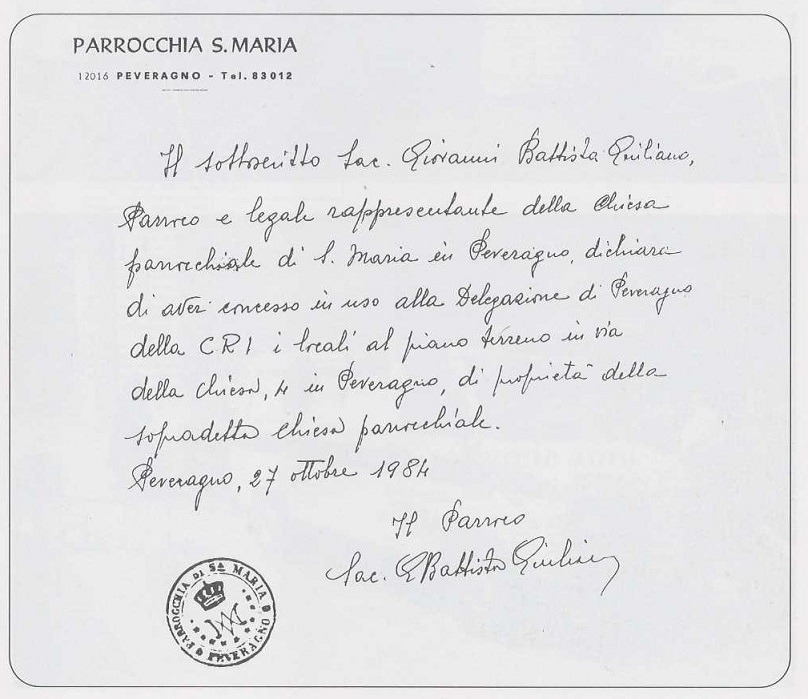 PARROCCHIA S. MARIA
12016 PEVERAGNO - Tel. 83012
Il sottoscritto Sac. Giovanni Battista Giuliano,
Parroco e legale rappresentante della Chiesa
parrochiale di S. Maria in Peveragno, dichiara
di aver concesso in uso alla Delegazione di Peveragno
della CRI i locali al piano terreno in via
della Chiesa, 4 in Peveragno, di proprietà della
sopradetta Chiesa parrocchiale.
Peveragno, 27 ottobre 1984
Il Parroco
Sac. GBattista Giuliano
PARROCCHIA DI Sa MARIA
PEVERAGNO